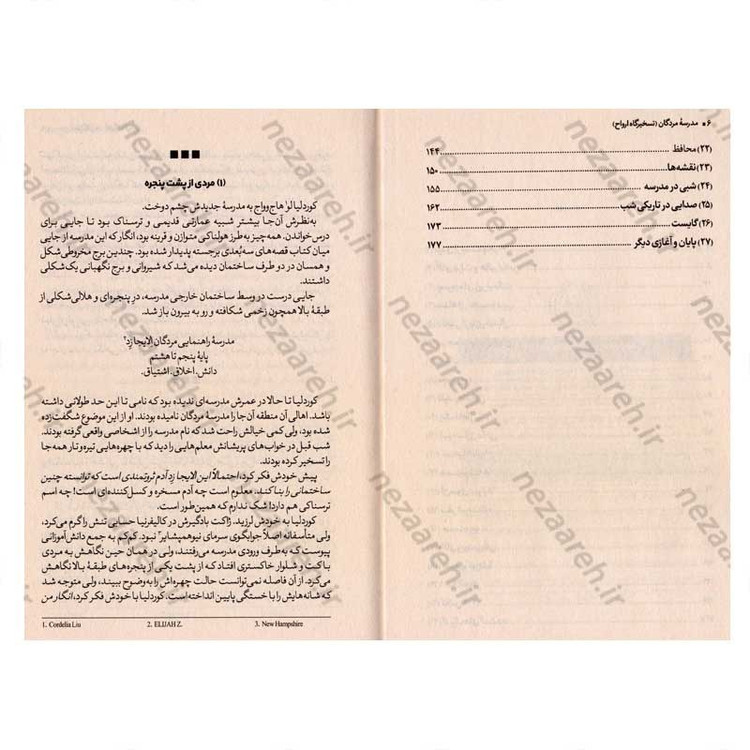 ۶ ▪ مدرسهٔ مردگان (تسخیرگاه ارواح)
(۲۲) محافظ ........ ۱۴۴
(۲۳) نقشه‌ها ........ ۱۵۰
(۲۴) شبی در مدرسه ........ ۱۵۵
(۲۵) صدایی در تاریکی شب ........ ۱۶۲
(۲۶) گایست ........ ۱۷۳
(۲۷) پایان و آغازی دیگر ........ ۱۷۷
(۱) مردی از پشت پنجره
کوردلیا لو¹ هاج‌وواج به مدرسهٔ جدیدش چشم دوخت.
به‌نظرش آن‌جا بیشتر شبیه عمارتی قدیمی و ترسناک بود تا جایی برای
درس‌خواندن. همه‌چیز به‌طرز هولناکی متوازن و قرینه بود، انگار که این مدرسه از جایی
میان کتاب قصه‌های سه‌بُعدی برجسته پدیدار شده بود. چندین برج مخروطی‌شکل
و همسان در دو طرف ساختمان دیده می‌شد که شیروانی و برج نگهبانی یک‌شکلی
داشتند.
جایی درست در وسط ساختمان خارجی مدرسه، درِ پنجره‌ای و هلالی‌شکلی از
طبقهٔ بالا همچون زخمی شکافته و رو به بیرون باز شد.
مدرسهٔ راهنمایی مردگان الایجا زد²
پایهٔ پنجم تا هشتم
دانش. اخلاق. اشتیاق.
کوردلیا تا حالا در عمرش مدرسه‌ای ندیده بود که نامی تا این حد طولانی داشته
باشد. اهالی آن منطقه آن‌جا را مدرسهٔ مردگان نامیده بودند. او از این موضوع شگفت‌زده
شده بود، ولی کمی خیالش راحت شد که نام مدرسه را از اشخاصی واقعی گرفته بودند.
شب قبل در خواب‌های پریشانش معلم‌هایی را دید که با چهره‌هایی تیره‌وتار همه‌جا
را تسخیر کرده بودند.
پیش خودش فکر کرد، احتمالاً این الایجا زد آدم ثروتمندی است که توانسته چنین
ساختمانی را بنا کند. معلوم است چه آدم مسخره و کسل‌کننده‌ای است! چه اسم
ترسناکی هم دارد! شک ندارم که همین‌طور است.
کوردلیا به خودش لرزید. ژاکت بادگیرش در کالیفرنیا حسابی تنش را گرم می‌کرد،
ولی متأسفانه اصلاً جوابگوی سرمای نیوهمپشایر³ نبود. کم‌کم به جمع دانش‌آموزانی
پیوست که به‌طرف ورودی مدرسه می‌رفتند، ولی در همان حین نگاهش به مردی
با کت و شلوار خاکستری افتاد که از پشت یکی از پنجره‌های طبقهٔ بالا نگاهش
می‌کرد. از آن فاصله نمی‌توانست حالت چهره‌اش را به‌وضوح ببیند، ولی متوجه شد
که شانه‌هایش را با خستگی پایین انداخته است. کوردلیا با خودش فکر کرد، انگار من
1. Cordelia Liu 2. ELIJAH Z. 3. New Hampshire
nezaareh.ir